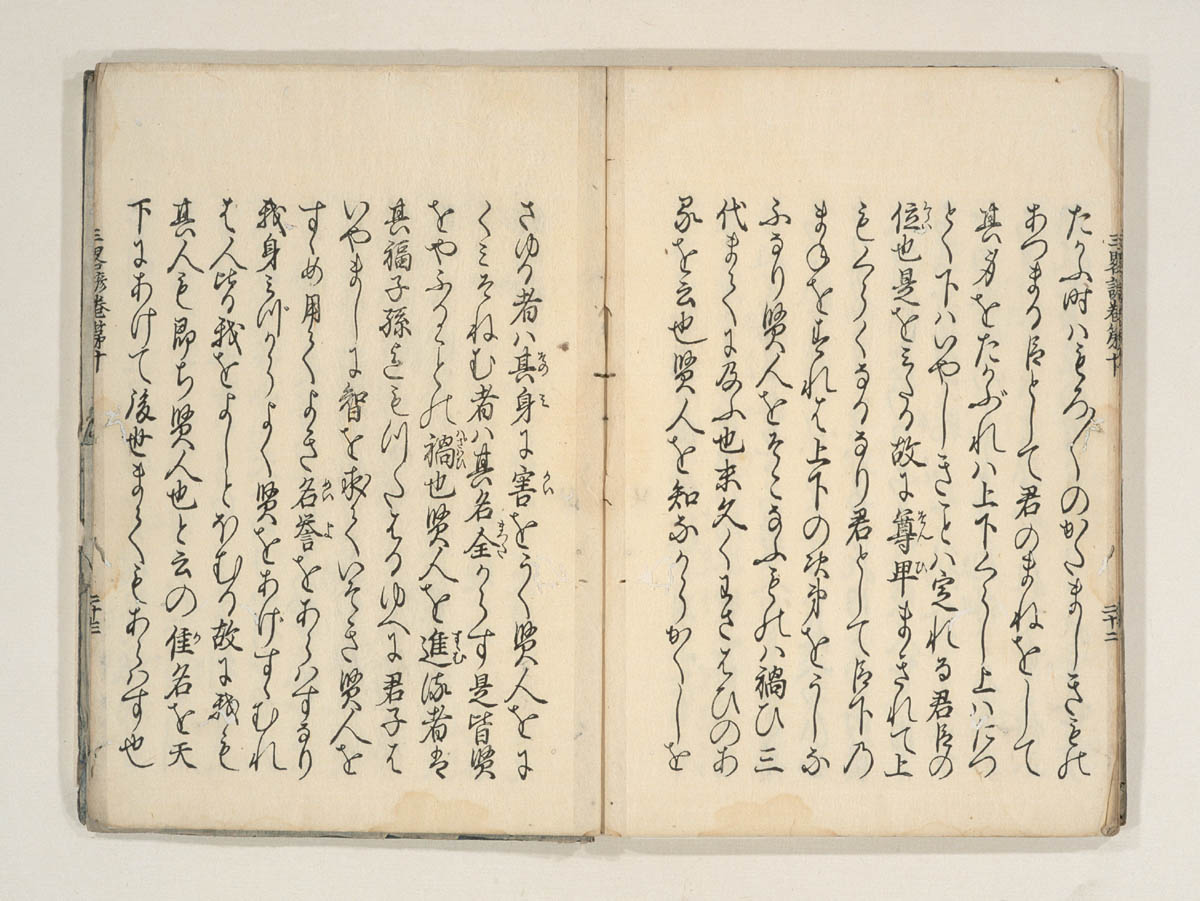 たかふ時ハもろ〳〵のかたましきもの
あつまる臣として君のまねをして
其身をたかぶれハ上下くらし上ハたつ
とく下ハいやしきことハ定れる君臣の
位也是をみたる故に尊卑まきれて上
もくらくなるなり君として臣下の
まねをすれは上下の次第をうしな
ふなり賢人をそこなふものハ禍ひ三
代まてに及ふ也末久くわさはひのあ
るを云也賢人を知なからかくしを
三十二
さゆる者ハ其身に害をうく賢人をに
くミそねむ者ハ其名全からす是皆賢
をやふることの禍也賢人を進る者は
其福子孫迄もつたはるゆへに君子は
いやましに智を求ていそき賢人を
すゝめ用てよき名誉をあらハすなり
我身みづからよく賢をあげすゝむれ
は人皆我をよしとほむる故に我も
其人も即ち賢人也と云の佳名を天
下にあけて後世まてもあらハす也
三十三